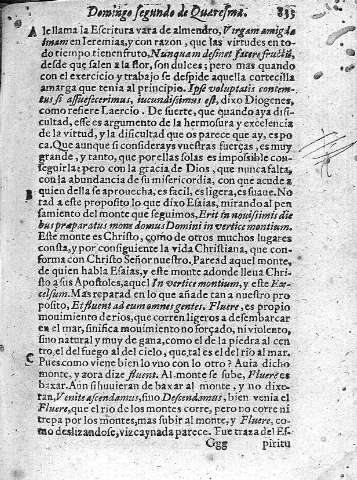 Domingo segundo de Quaresma. 835
A le llama la Escritura vara de almendro, Virgam amigda
linam en Ieremias, y con razon, que las virtudes en to
do tiempo tienen fruto. Nunquam desinet facere fructũ,
desde que salen a la flor, son dulces; pero mas quando
con el exercicio y trabajo se despide aquella cortecilla
amarga que tenia al principio. Ipse voluptatis contem-
tus si assuescerimus, iucundissimus est, dixo Diogenes,
como refiere Laercio. De suerte, que quando aya difi-
cultad, esse es argumento de la hermosura y excelencia
de la virtud, y la dificultad que os parece que ay, es po
ca. Que aunque si considerays vuestras fuerças, es muy
grande, y tanto, que por ellas solas es impossible con-
seguirla: pero con la gracia de Dios, que nunca falta,
con la abundancia de su misericordia, con que acude a
quien della se aprouecha, es facil, es ligera, es suaue. No
B rad a este proposito lo que dixo Esaias, mirando al pen
samiento del monte que seguimos, Erit in nouissimis die
bus præparatus mons domus Domini in vertice montium.
Este monte es Christo, como de otros muchos lugares
consta, y por consiguiente la vida Christiana, que con-
forma con Christo Señor nuestro. Paread aquel monte,
de quien habla Esaias, y este monte adonde lleua Chris-
to a sus Apostoles, aquel In vertice montium, y este Ex-
celsum. Mas reparad en lo que añade tan a nuestro pro
posito, Et fluent ad eum omnes gentes. Fluere, es propio
mouimiento de rios, que corren ligeros a desembarcar
en el mar, sinifica mouimiento no forçado, ni violento,
sino natural y muy de gana, como el de la piedra al cen
tro, el del fuego al del cielo, que tal es el del rio al mar.
C Pues como viene bien lo vno con lo otro? Auia dicho
monte, y aora dize fluent. Al monte se sube, Fluere es
baxar. Aun si huuieran de baxar al monte, y no dixe-
ran, Venite ascendamus, sino Descendamus, bien venia el
Fluere, que el rio de los montes corre, pero no corre ni
trepa por los montes, mas subir al monte, y Fluere, co-
mo deslizandose, vizcaynada parece. Fue traza del Es-
Ggg piritu